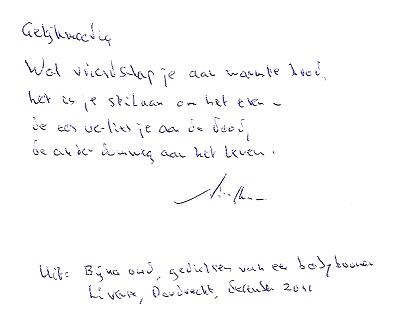 Gelijkmoedig
Wat vriendschap je aan warmte bood,
het is je stilaan om het even –
de een verlies je aan de dood,
de ander domweg aan het leven.
Uit: Bijna oud, gedichten van een babyboomer
Liverse, Dordrecht, december 2011